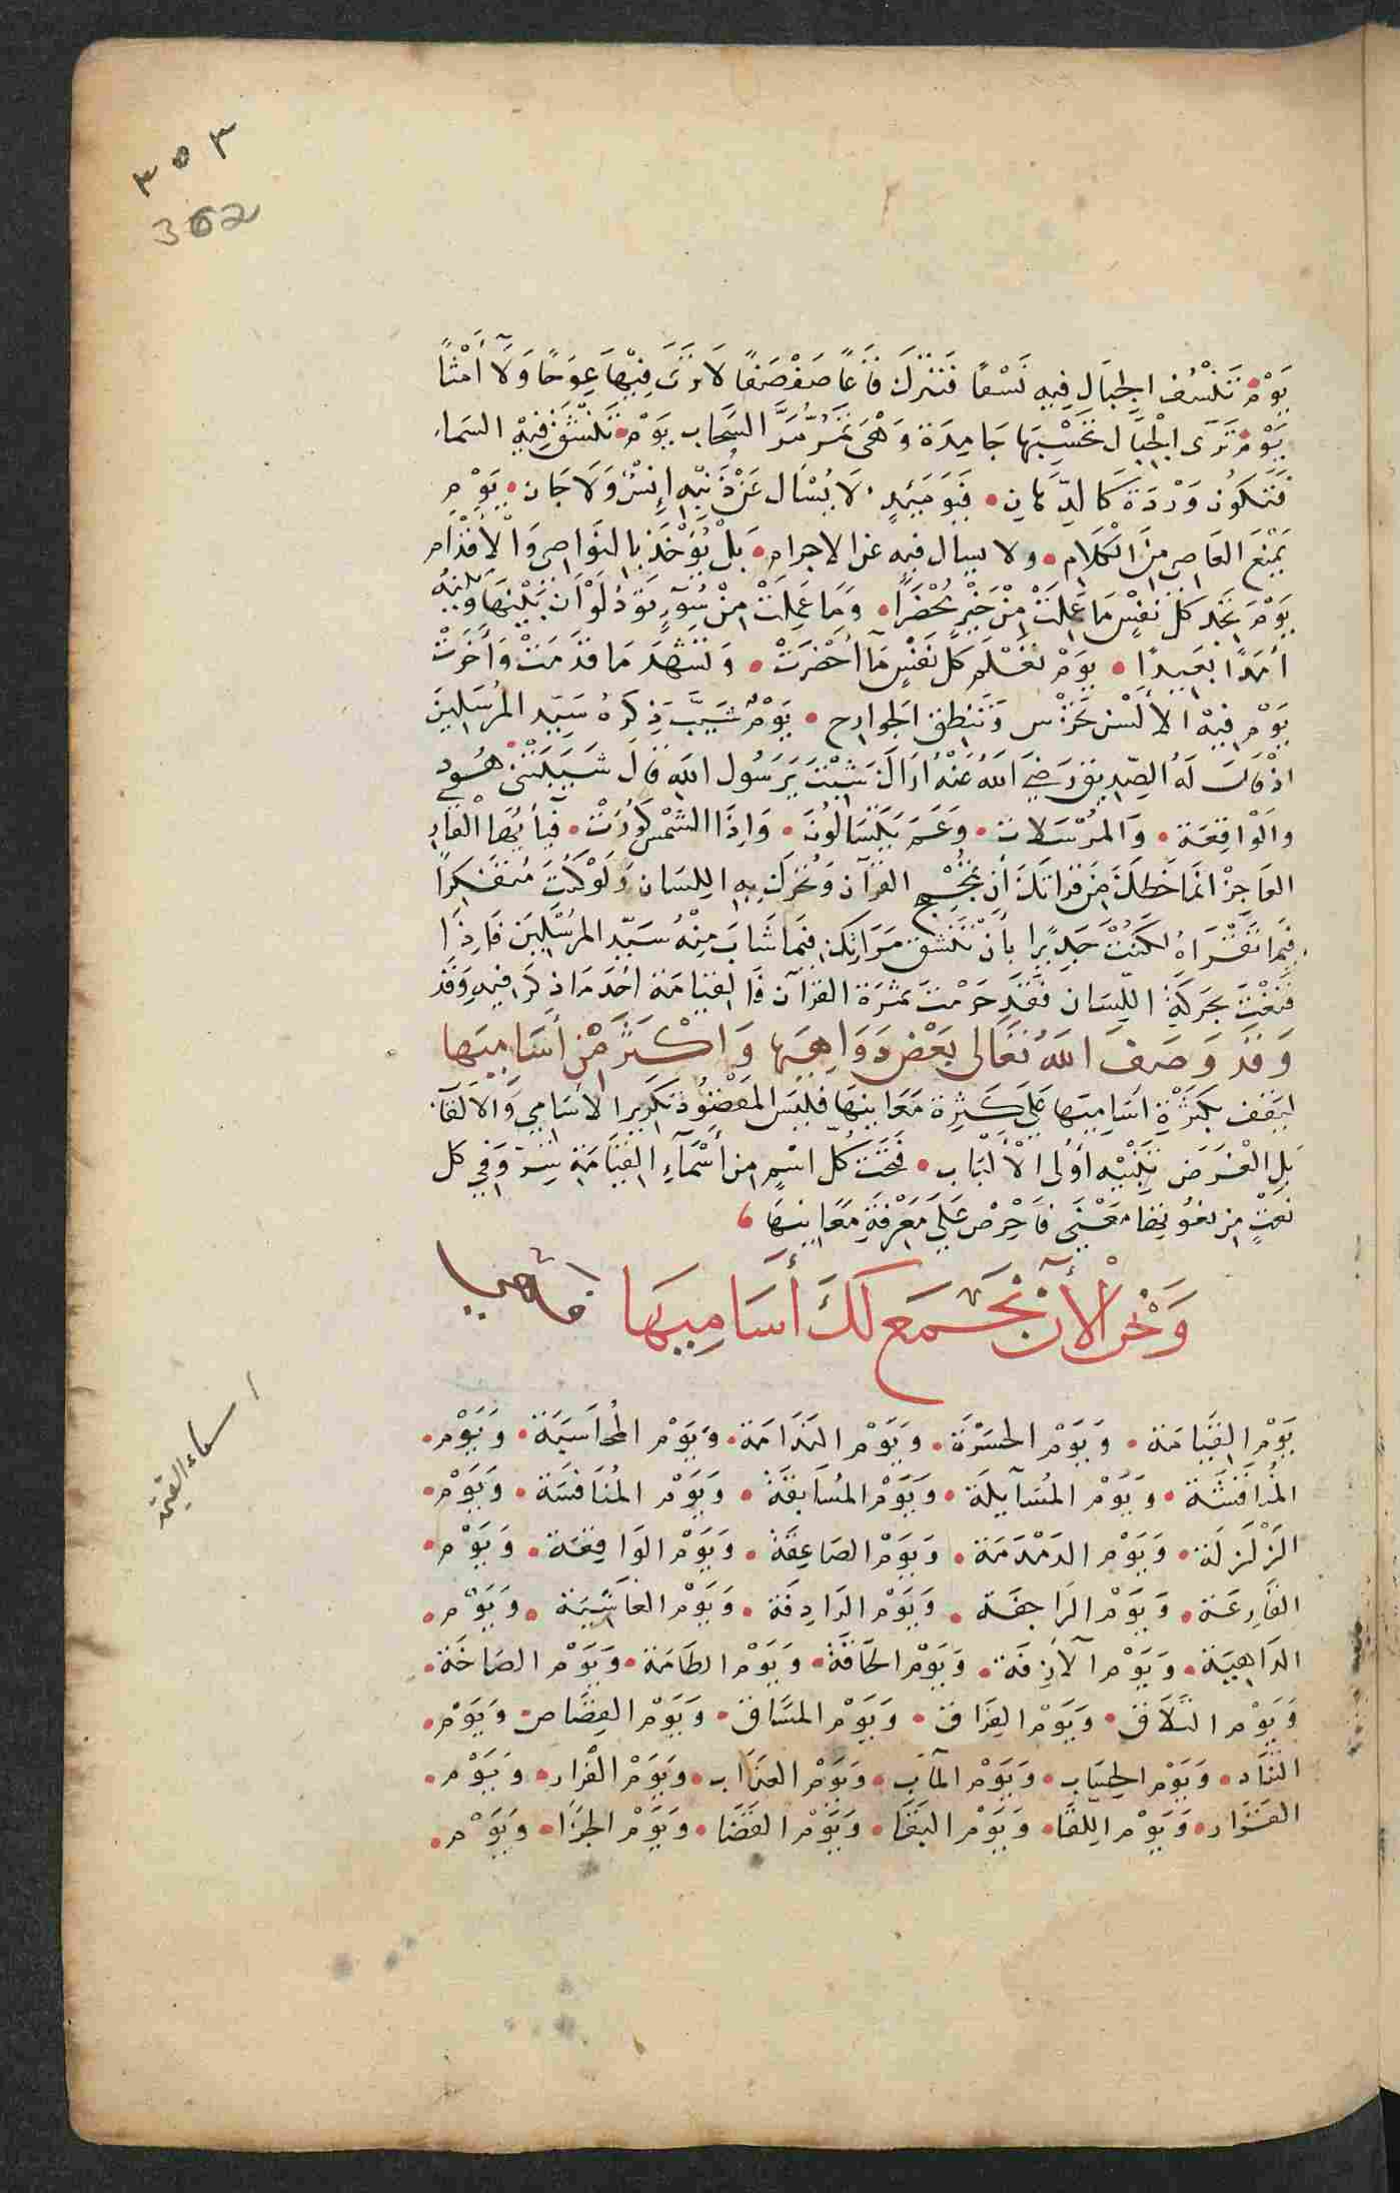 ٣٠٣
302
يَوْمَ تَنْسُف الجبَال فِيهِ نَسْفًا فَتَتْرَك قَاعًا صَفْصَفًا لَا تَرَى فِيْهَا عِوَجًا وَلَا أَمْتًا
يَوْمَ تَرَى الْجِبَال تَحْسِبَهَا جَامِدَة وَهْىَ تَمُرّ مَرَّ السَّحَاب يَوْمَ تَنْشَقّ فِيْهِ السَمَاء
فَتَكُون وَرْدَةً كَالدِّهَانِ • فَيَوْمَئِذٍ لَا يُسْأَل عَنْ ذَنْبِهِ إِنْسٌ وَلَا جَان • يَوْم
يمْنَع العَاصِى مِنَ الْكَلَامِ • ولا يسال فيه عن الاجرام • بَلْ يُؤْخَذ بِالنَوَاصِى وَالأَقْدَام
يَوْمَ تَجد كل نفسٍ مَا عَمِلَتْ مِنْ خَيْرٍ مُحْضَرًا • وَمَا عَمِلَتْ مِنْ سُوءٍ تَوَدُّ لَوْ أَن بَيْنَهَا وَبَيْنَهُ
أَمَدًا بَعِيدًا • يَوْمَ تَعْلَم كل نَفْسٍ مَا أَحْضَرَتْ • وَتَشْهَد مَا قَدمَتْ وَأَخَّرَتْ
يَوْم فِيْهِ الأَلْسُن تَخْرس وَتَنْطِق الجَوَارِح • يَوْمٌ شَيَّبَ ذِكرهُ سَيِّد المُرْسَلِينَ
اذْ قَالَ لَهُ الصّدِيق رَضِيَ اللهُ عَنْهُ أَرَاكَ شِبْتَ يَرَسُول الله قَالَ شَيَّبَتْنِى هُود
وَالْوَاقِعَة • وَالمُرْسَلات • وَعَمَّ يَتَسَاءلُونَ • وَإِذَا الشَمْسُ كُوِّرَتْ • فَيأَيُّهَا القَارِى
العَاجِزْ انَّمَا حَظّكَ مِنْ قِرَاتكَ أَن تُمَجْمِج القُرْآن وَتُحَرّك بِهِ اللِسَان وَلَوْ كُنْتَ مُتَفَكِّرًا
فِيمَا تَقْرَأهُ لَكُنْتَ جَدِيرًا بأَنْ تَنْشَقّ مَرَارَتك فِيمَا شَابَ مِنْهُ سَيِّد المُرْسَلِينَ فَإِذَا
قَنعْتَ بحَرَكَةِ اللّسَان فَقَدْ حَرمْتَ ثمَرَة القُرْآن فَالقِيَامَة أَحَد مَا ذكرَ فِيهِ وَقَد
وَقَد وَصَفَ اللهُ تَعَالَى بَعْض دَوَاهِيهَا وَاكْثَرَ مِنْ أَسَامِيهَا
لتَقف بكَثْرَةِ أسَامِيهَا عَلَى كَثرة مَعَانِيهَا فَلَيْسَ المَقْصُود تَكرير الأَسَامِي وَالأَلقَاب
بَلِ الغَرَض تَنْبِيْه أُولى الأَلْبَاب • فَتَحْتَ كُلّ اسْمٍ مِن أَسْمَاءِ القِيَامَةِ سِرّ وَفِي كل
نَعْتٍ مِن نعُوتهَا مَعْنَى فَاحْرِص عَلَى مَعْرِفَةِ مَعَانِيهَا
وَنَحْنُ الأَن نَجْمَع لَكَ أَسَامِيهَا
اسماء القيمة
يَوْم القِيَامَة • وَيَوْم الحَسْرَة • وَيَوْم النَدَامَة • وَيَوْم المُحَاسَبَة • وَيَوْم •
المُنَاقَشَة • وَيَوْم المُسَآيلَة • وَيَوْم المُسَابَقَة • وَيَوْم المُنَافَسَة • وَيَوْم •
الزَلْزَلَة • وَيَوْم الدَمْدَمَة • وَيَوْم الصَاعِقَة • وَيَوْم الوَاقِعَة • وَيَوْم •
القَارِعَة • وَيَوْم الرَاجفَة • وَيَوْم الرَادِفَة • وَيَوْم الغَاشِيَة • وَيَوْم •
الدَاهِيَة • وَيَوْم الآزِفَة • وَيَوْم الحَاقَّة • وَيَوْم الطَامَة • وَيَوْم الصَاخَة •
وَيَوْم التَلَاق • وَيَوْم الفِرَاق • وَيَوْم المسَاق • وَيَوْم القِصَاص • وَيَوْم •
التَنَاد • وَيَوْم الحِسَاب • وَيَوْم المآب • وَيَوْم العَذَاب • وَيَوْم الفرَار • وَيَوْم •
القَرَار • وَيَوْم اللِقَا • وَيَوْم البَقَا • وَيَوْم القَضَا • وَيَوْم الجَزَا • وَيَوْم •